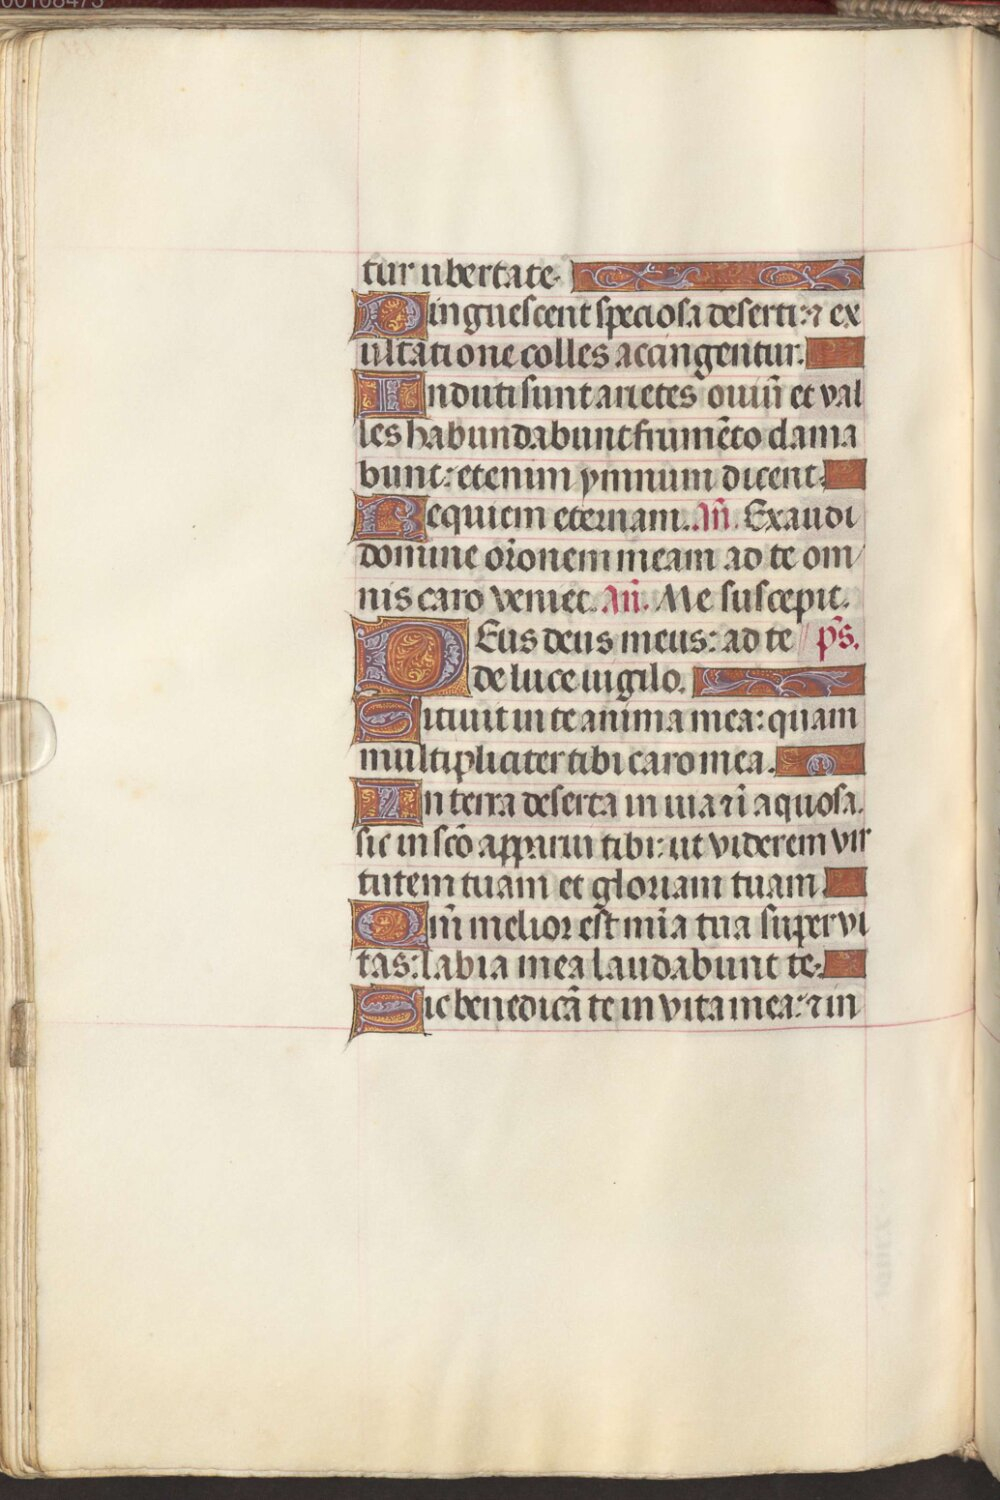 00108473
tur ubertate.
Pinguescent speciosa deserti: ⁊ ex
ultatione colles accingentur.
Induti sunt arietes ouiũ et val
les habundabunt frumẽto clama
bunt: etenim ymnum dicent.
Requiem eternam. Añ. Exaudi
domine or̃onem meam ad te om
nis caro veniet. Añ. Me suscepit.
Deus deus meus: ad te p̃s.
de luce uigilo.
Sitiuit in te anima mea: quam
multipliciter tibi caro mea.
In terra deserta in uia ⁊ ĩ aquosa.
sic in sc̃o apparui tibi: ut viderem vir
tutem tuam et gloriam tuam.
Qm̃ melior est mĩa tua super vi
tas: labia mea laudabunt te.
Sic benedicã te in vita mea: ⁊ in